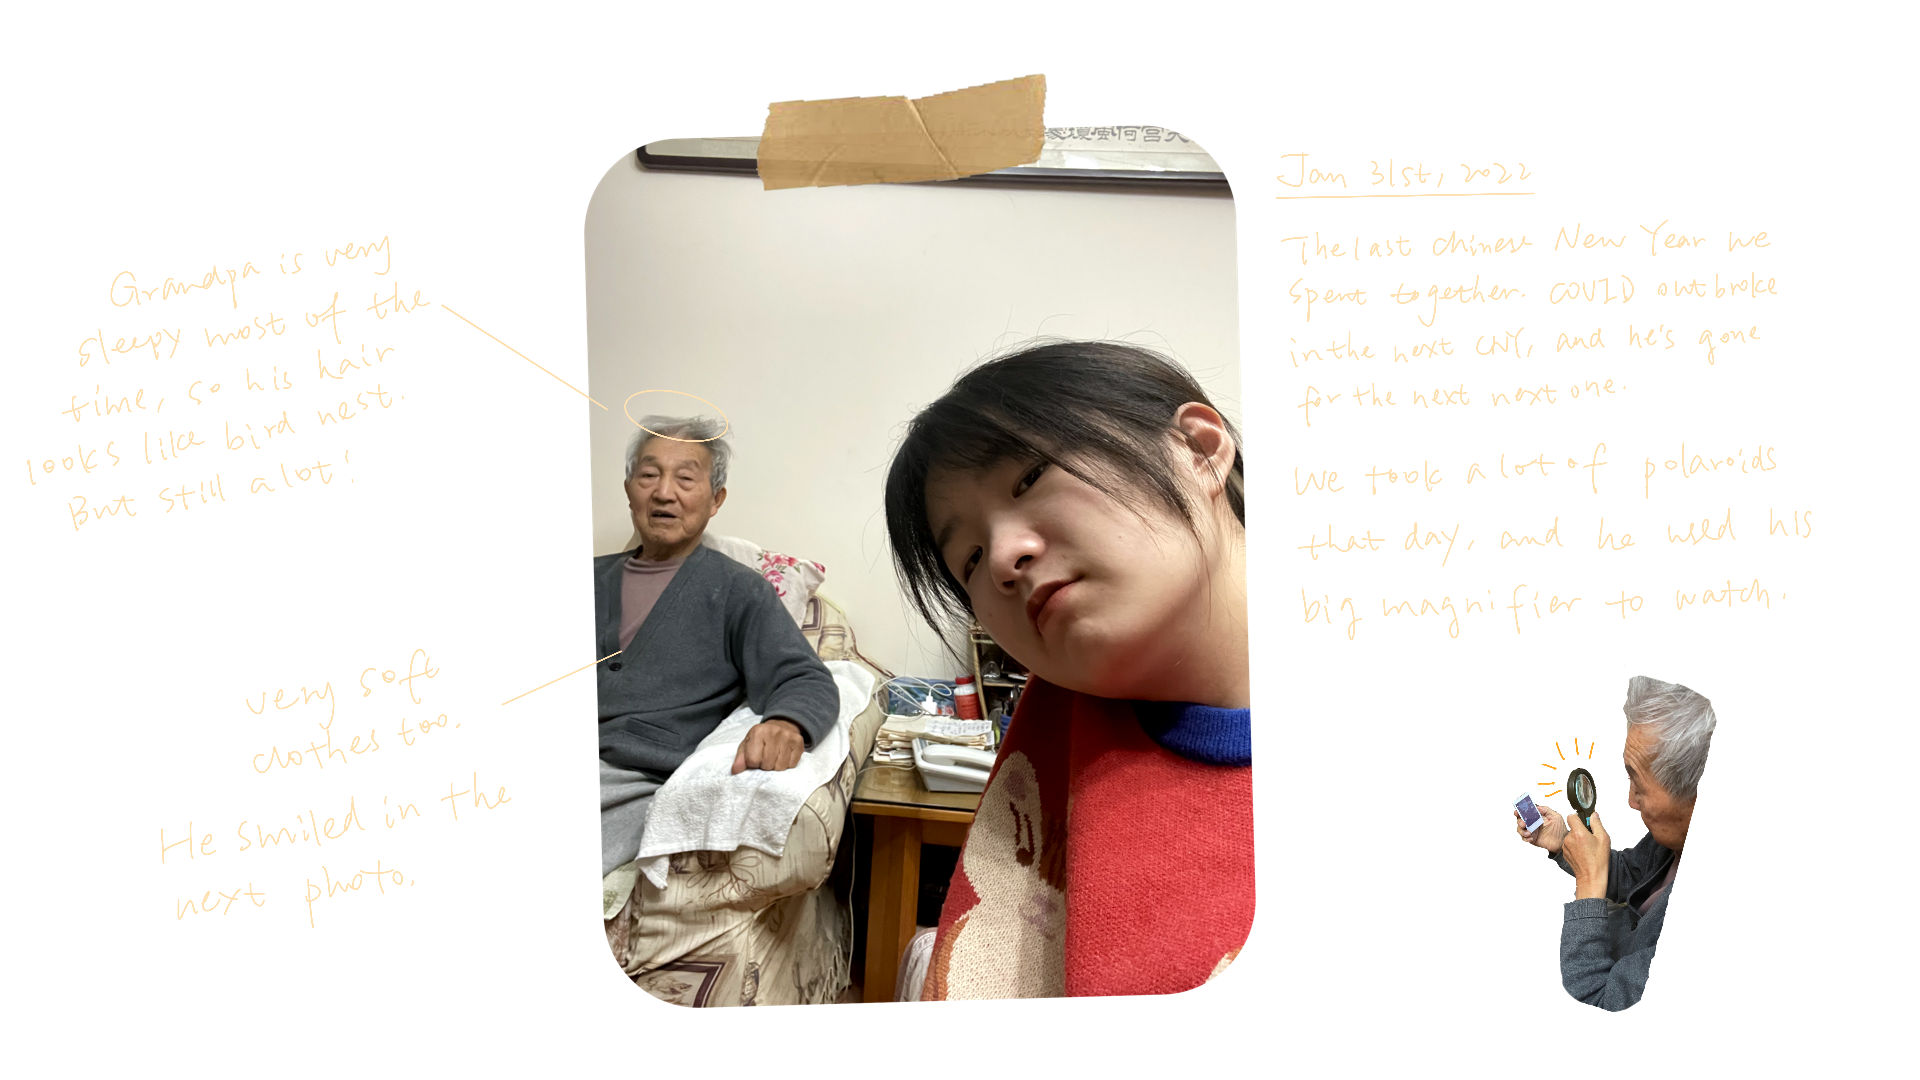 Grandpa is very
sleepy most of the
time, so his hair
looks like bird nest.
But still a lot!
very soft
clothes too.
He smiled in the
next photo.
Jan 31st, 2022
The last chinese New Year we
spent together. COVID outbroke
in the next CNY, and he's gone
for the next next one.
We took a lot of polaroids
that day, and he used his
big magnifier to watch.